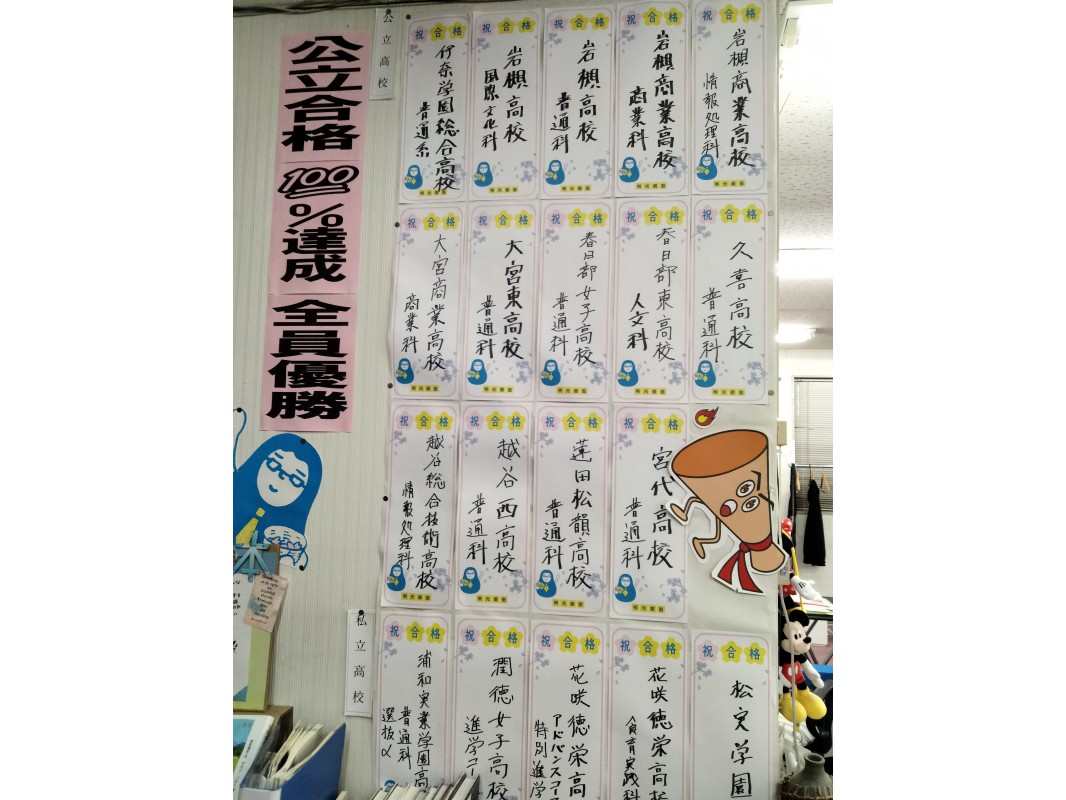 公立合格
100%達成
全員優勝
公立高校
祝合格
伊奈学園総合高校
普通系
明光義塾
祝合格
岩槻高校
国際文化科
明光義塾
祝合格
岩槻高校
普通科
明光義塾
祝合格
岩槻商業高校
商業科
明光義塾
祝合格
岩槻商業高校
情報処理科
明光義塾
祝合格
大宮商業高校
商業科
明光義塾
祝合格
大宮東高校
普通科
明光義塾
祝合格
春日部女子高校
普通科
明光義塾
祝合格
春日部東高校
人文科
明光義塾
祝合格
久喜高校
普通科
明光義塾
祝合格
越谷総合技術高校
情報処理科
明光義塾
祝合格
越谷西高校
普通科
明光義塾
祝合格
蓮田松韻高校
普通科
明光義塾
祝合格
宮代高校
普通科
明光義塾
私立高校
祝合格
浦和実業学園高
普通科
選抜α
祝合格
潤徳女子高校
進学コー
祝合格
花咲徳栄高
アドバンスコース
特別進学
祝合格
花咲徳栄高校
食育実践科
祝合格
松実学園